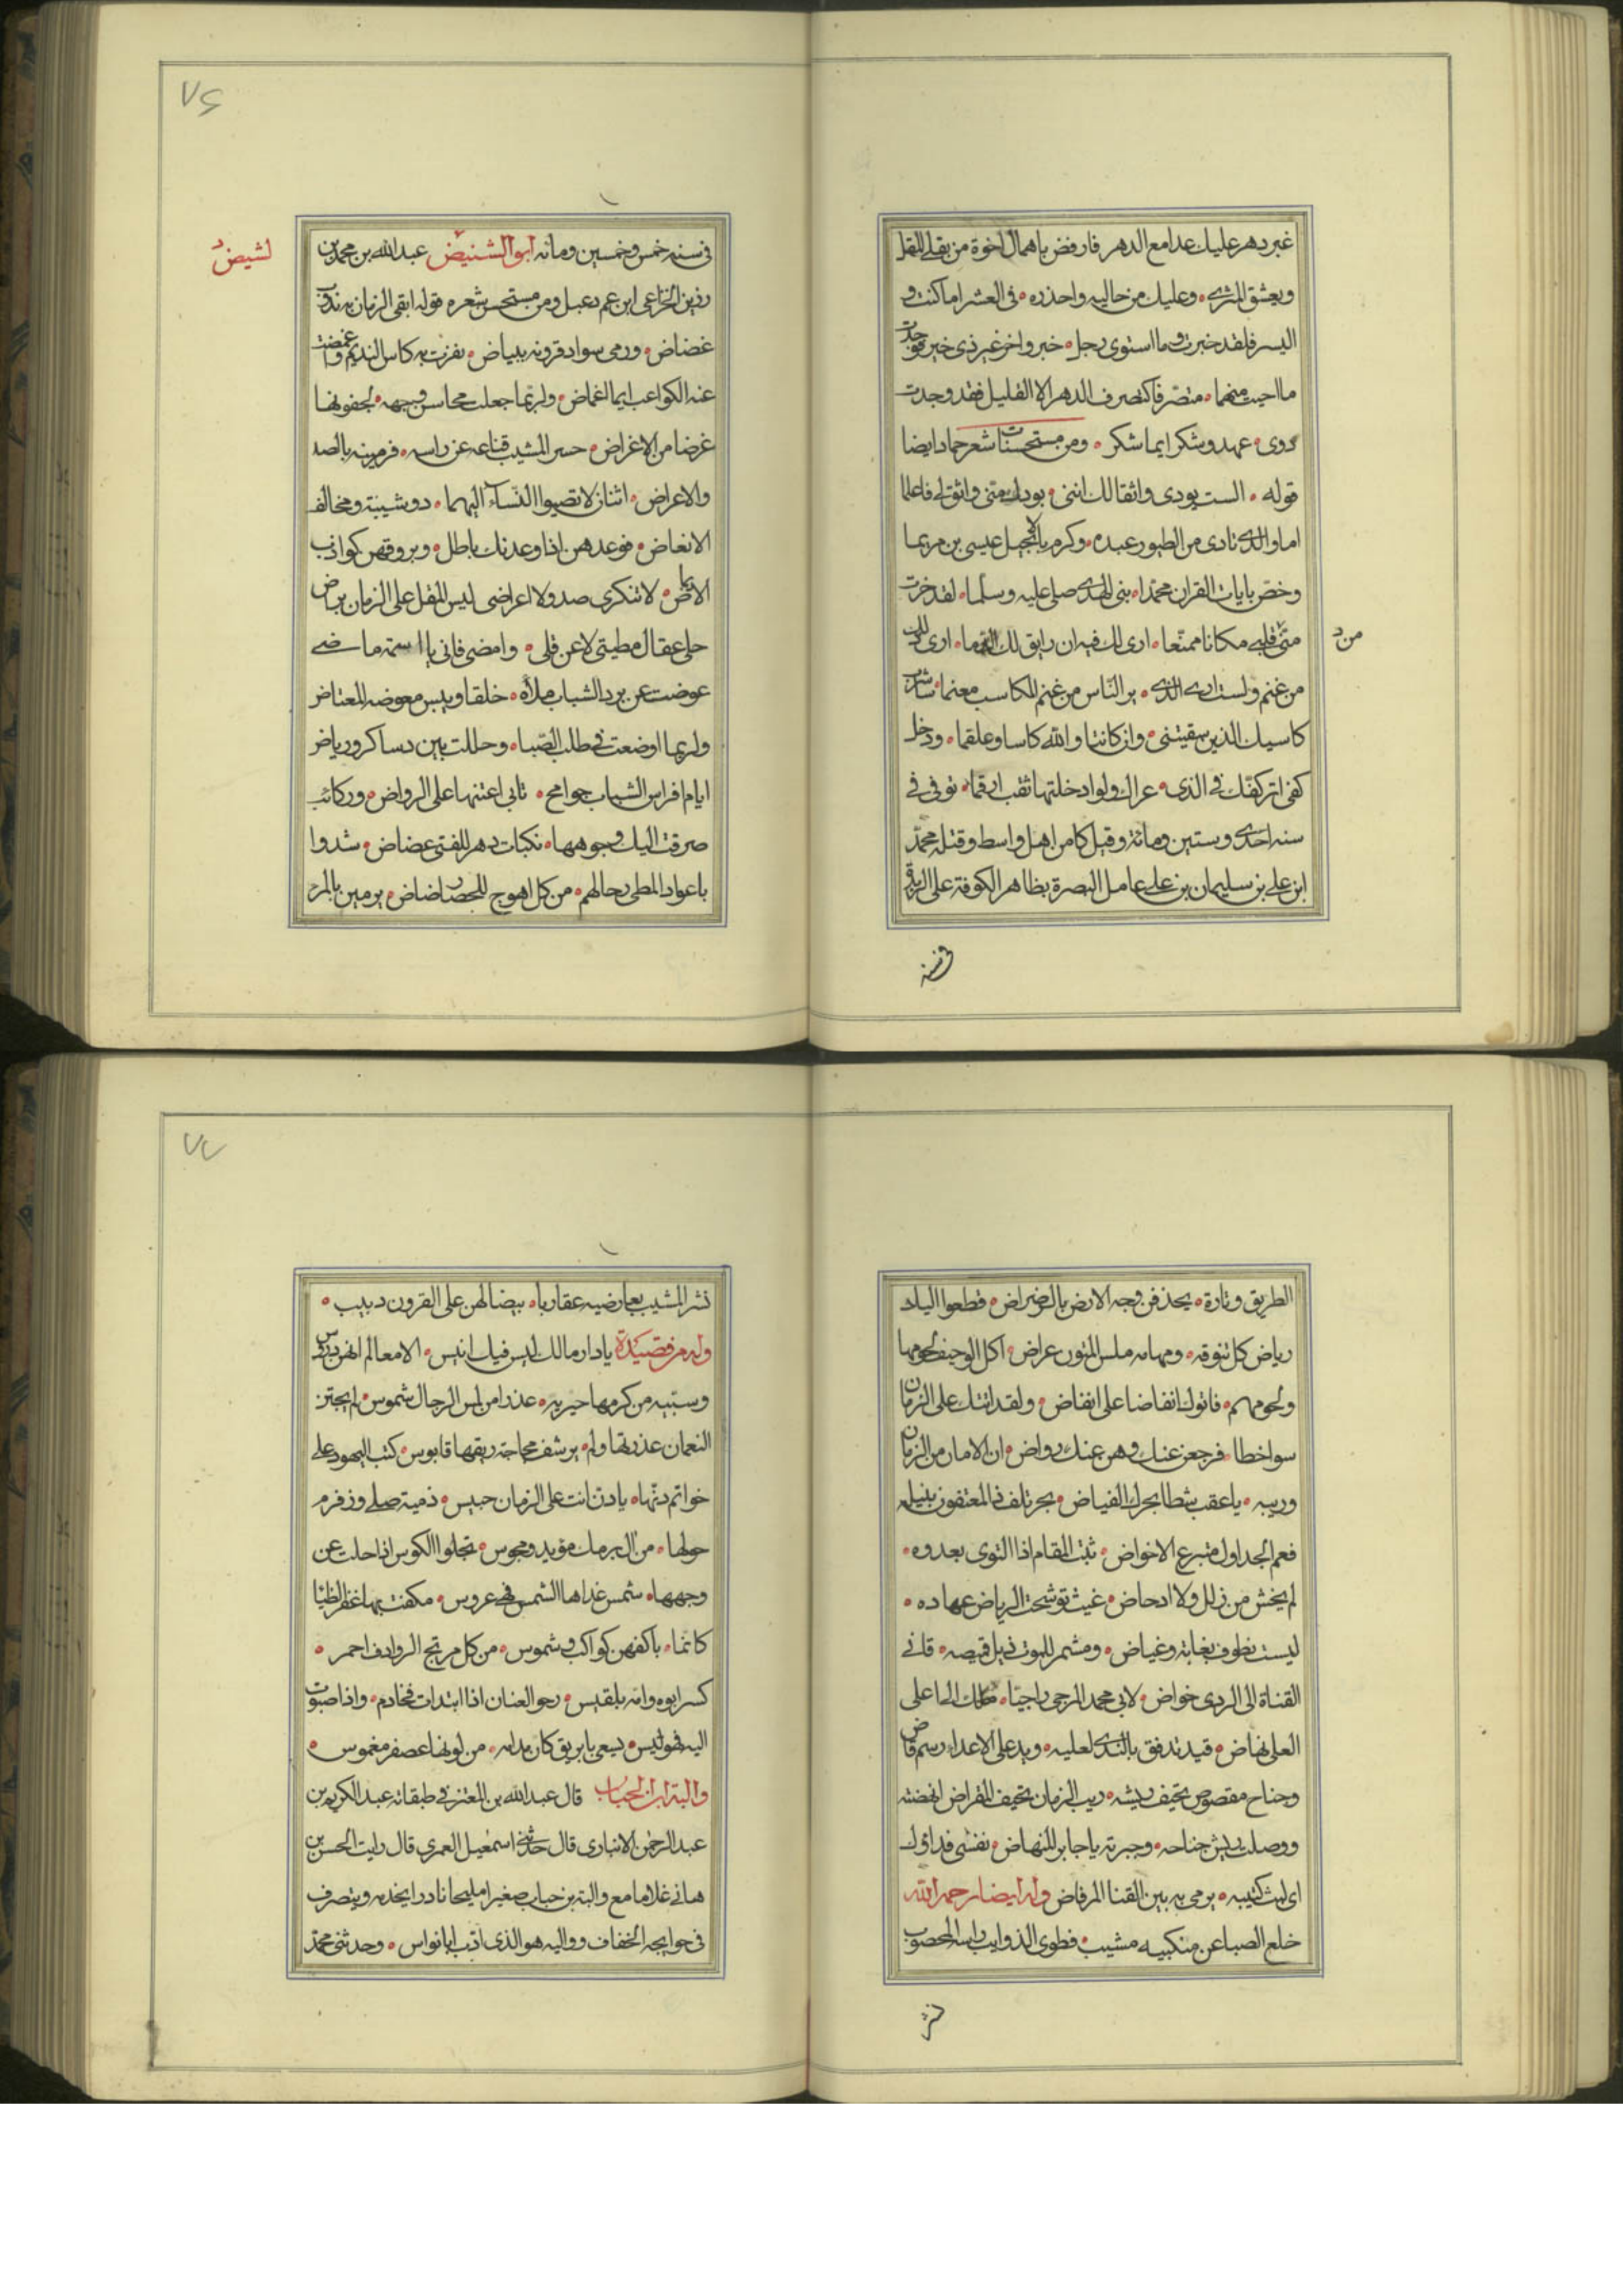 غبر دهر عليك عدا مع الدهر فارفض باهمال اخوة من يقلى المقل
ويعشق المثرى • وعليك من حاليه واحذره • فى العسر اما كنت و
اليسر فلقد خبرت وما استوى رجل • خبر واخر غير ذى خبر فوجدت
ما احببت منهما • متصرفا كتصرف الدهر الا القليل فقد وجدت
ذوى • عهد وشكر ايما شكر • ومن مستحسنات شعر حماد ايضا
قوله • الست بودى واثقا لك اننى • بودك منى واثق لى فاعلما
اما والذى نادى من الطور عبده • وكرم بالانجيل عيسى بن مريما
وخص بايات القران محمدا • نبى الهدى صلى عليه وسلما • لقد حزت
من د
منى قلبى مكانا ممنعا • ارى لك فيه ان رايق لك • ارى لك
من غنم ولست ارى الذى • يرى الناس من غنم المكاسب مغنما •
كاسيك الذين سقيتنى • وان كانتا والله كاسا وعلقما • ودخل
كفى اثر كفك فى الذى • عراك ولو ادخلتها ثقب ارقما • توفى فى
سنه احدى وستين ومائة وقيل كا من اهل واسط وقتله محمد
ابن على بن سليمان بن على عامل البصرة بظاهر الكوفة على الزندقة
فى سنه
٧٦
فى سنه خمس وخمسين ومائه ابو الشنيض عبد الله بن محمد بن
لشيض د
رزين الخزاعى ابن عم دعبل ومن مستحسن شعره قوله ابقى الزمان به ندوب
غضاض • ورمى سواد قرونه ببياض • نفرت به كاس النديم واغمضت
عنه الكواعب ايما اغماض • ولربما جعلت محاسن وجهه • لجفونها
غرضا من الاغراض • حسر المشيب قناعه عن راسه • فرمينه بالصد
والاعراض • اثنان لا تصبوا النساء اليهما • ذو شيبة ومخالف
الانفاض • فوعدهن اذا وعدنك باطل • وبروقهن كواذب
الايماض • لا تنكرى صدو ولا اعراضى ليس المقل على الزمان براض
حلى عقال مطيتى لا عن قلى • وامضى فانى يا اميمة ماضى
عوضت عن برد الشباب ملاه • خلقا وبيس معوضه المعتاض
ولربما اوضعت فى طلب الصبا • وحللت بين دساكر ورياض
ايام افراس الشباب جوامح • تابى اعنتها على الرواض • وركائب
صرفت اليك وجوهها • نكبات دهر للفتى عضاض • شدوا
باعواد المطى رحالهم • من كل اهوج للحصا رضاض • يرمين بالمر
الطريق وتارة • يحذفن وجه الارض بالرضراض • قطعوا اليك
رياض كل تنوفه • ومهامه ملس المتون عراض • اكل الوجيف لحومها
ولحومهم • فاتوك انقاضا على انقاض • ولقد اتتك على الزمان
سواخطا • فرجعن عنك وهن عنك رواض • ان الامان من الزمان
وريبه • يا عقب شطا بحرك الفياض • بحر تلف المعتفون بنيله
فعم الجداول مترع الاحواض • ثبت المقام اذا التوى بعدوه •
لم يخش من زلل ولا ادحاض • غيث توشحت الرياض عهاده •
ليست نطوف بغابة وغياض • ومشمر للموت ذيل قميصه • قانى
القناة الى الردى خواض • لابى محمد المرجى راحتا • ملك الى اعلى
العلى نهاض • فيد تدفق بالندى لعليه • ويد على الاعدا رسم قاض
وجناح مقصوص تحيف ريشه • ريب الزمان تحيف المقراض انهضته
ووصلت ريش جناحه • وجبرته يا جابر المنهاض • نفسى فداؤك
اى ليث كتيبه • يرمى به بين القنا المرفاض وله ايضا رحمه الله
خلع الصبا عن منكبيه مشيب • فطوى الذوايب راسه المخضوب
نثر
٧٧
نثر المشيب بعارضيه عقاربا • بيضا لهن على القرون دبيب •
وله من قصيدة يا دار مالك ليس فيك انيس • الا معالم ايهن دروس
وسبيه من كرمها حيريه • عذرا من لمس الرجال شموس • لم يجتز
النعمان عذرتها ولم • يرشف مجاجة ريقها قابوس • كتب اليهود على
خواتم دنها • يا دن انت على الزمان حبيس • ذمية صلى وزفرم
حولها • من ال برمك مؤبد ومجوس • تجلوا الكوس اذا جلت عن
وجهها • شمس غداها الشمس فهى عروس • عكفت بها عفر الظبا
كانما • باكفهن كواكب وشموس • من كل مرتج الروادف احمر •
كسرا ابوه وامه بلقيس • رخو العنان اذا ابتدات فخادم • واذا صبوت
اليه فهو ليس • يسعى بابريق كان فدامه • من لونها عصفر مغموس •
والبة ابن الحباب قال عبد الله بن المعتز فى طبقاته عبد الكريم بن
عبد الرحمن الانبارى قال حدثنى اسمعيل العمرى قال رايت الحسن بن
هانى غلاما مع والبة بن حباب صغيرا مليحا نادرا يخدمه ويتصرف
فى حوايجه الخفاف ووالبه هو الذى ادب ابا نواس • وحدثنى محمد